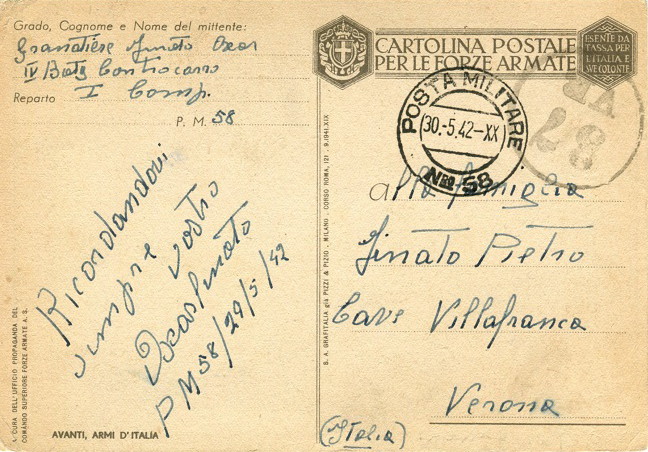 Grado, Cognome e Nome del mittente:
Granatiere
IV Batg Controcarro
Reparto I Comp.
P. M. 58
Ricordandovi
sempre
vostro
PM 58/29/5/42
A CURA DELL'UFFICIO PROPAGANDA DEL
COMANDO SUPERIORE FORZE ARMATE A. S.
AVANTI, ARMI D'ITALIA
S. A. GRAFITALIA già PIZZI & PIZIO - MILANO - CORSO ROMA, 121 - 9.1941.XIX
CARTOLINA POSTALE
PER LE FORZE ARMATE
ESENTE DA
TASSA PER
L'ITALIA E
LVE COLONIE
POSTA MILITARE
30.-5.42-XX
Nro 58
alla famiglia
Pietro
Cave Villafranca
Verona
(Italia)